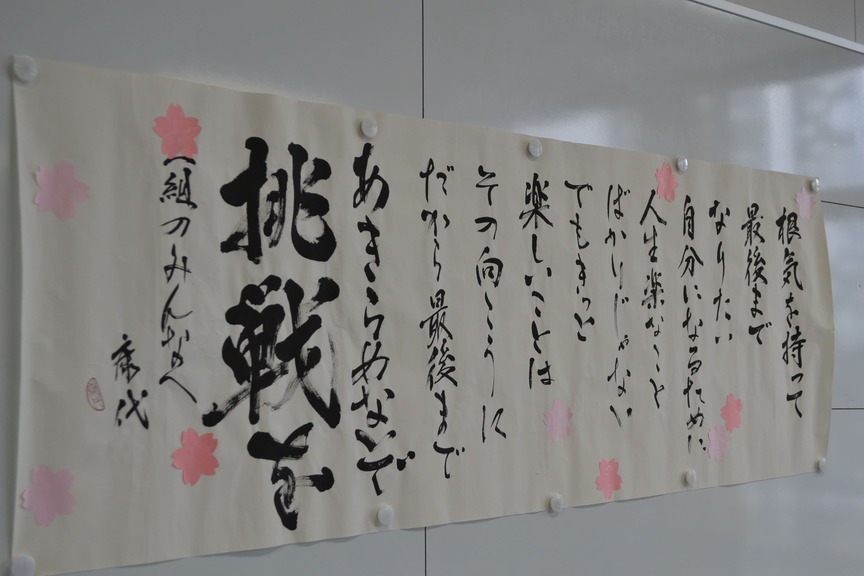 根気を持って
最後まで
なりたい
自分になるために
人生楽なこと
ばかりじゃない
でもきっと
楽しいことは
その向こうに
だから最後まで
あきらめないで
挑戦を
一組のみんなへ